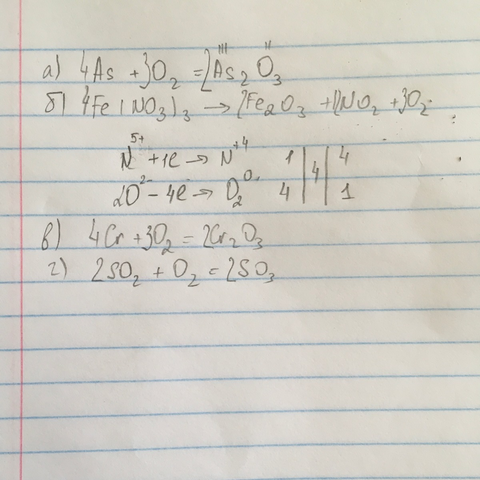 а) 4As + 3O₂ = 2As₂O₃ III II
б) 4Fe(NO₃)₃ → 2Fe₂O₃ + 12NO₂ + 3O₂.
N⁵⁺ + 1e → N⁺⁴ 1 | 4 | 4
2O²⁻ − 4e → O₂⁰ 4 | | 1
в) 4Cr + 3O₂ = 2Cr₂O₃
г) 2SO₂ + O₂ = 2SO₃